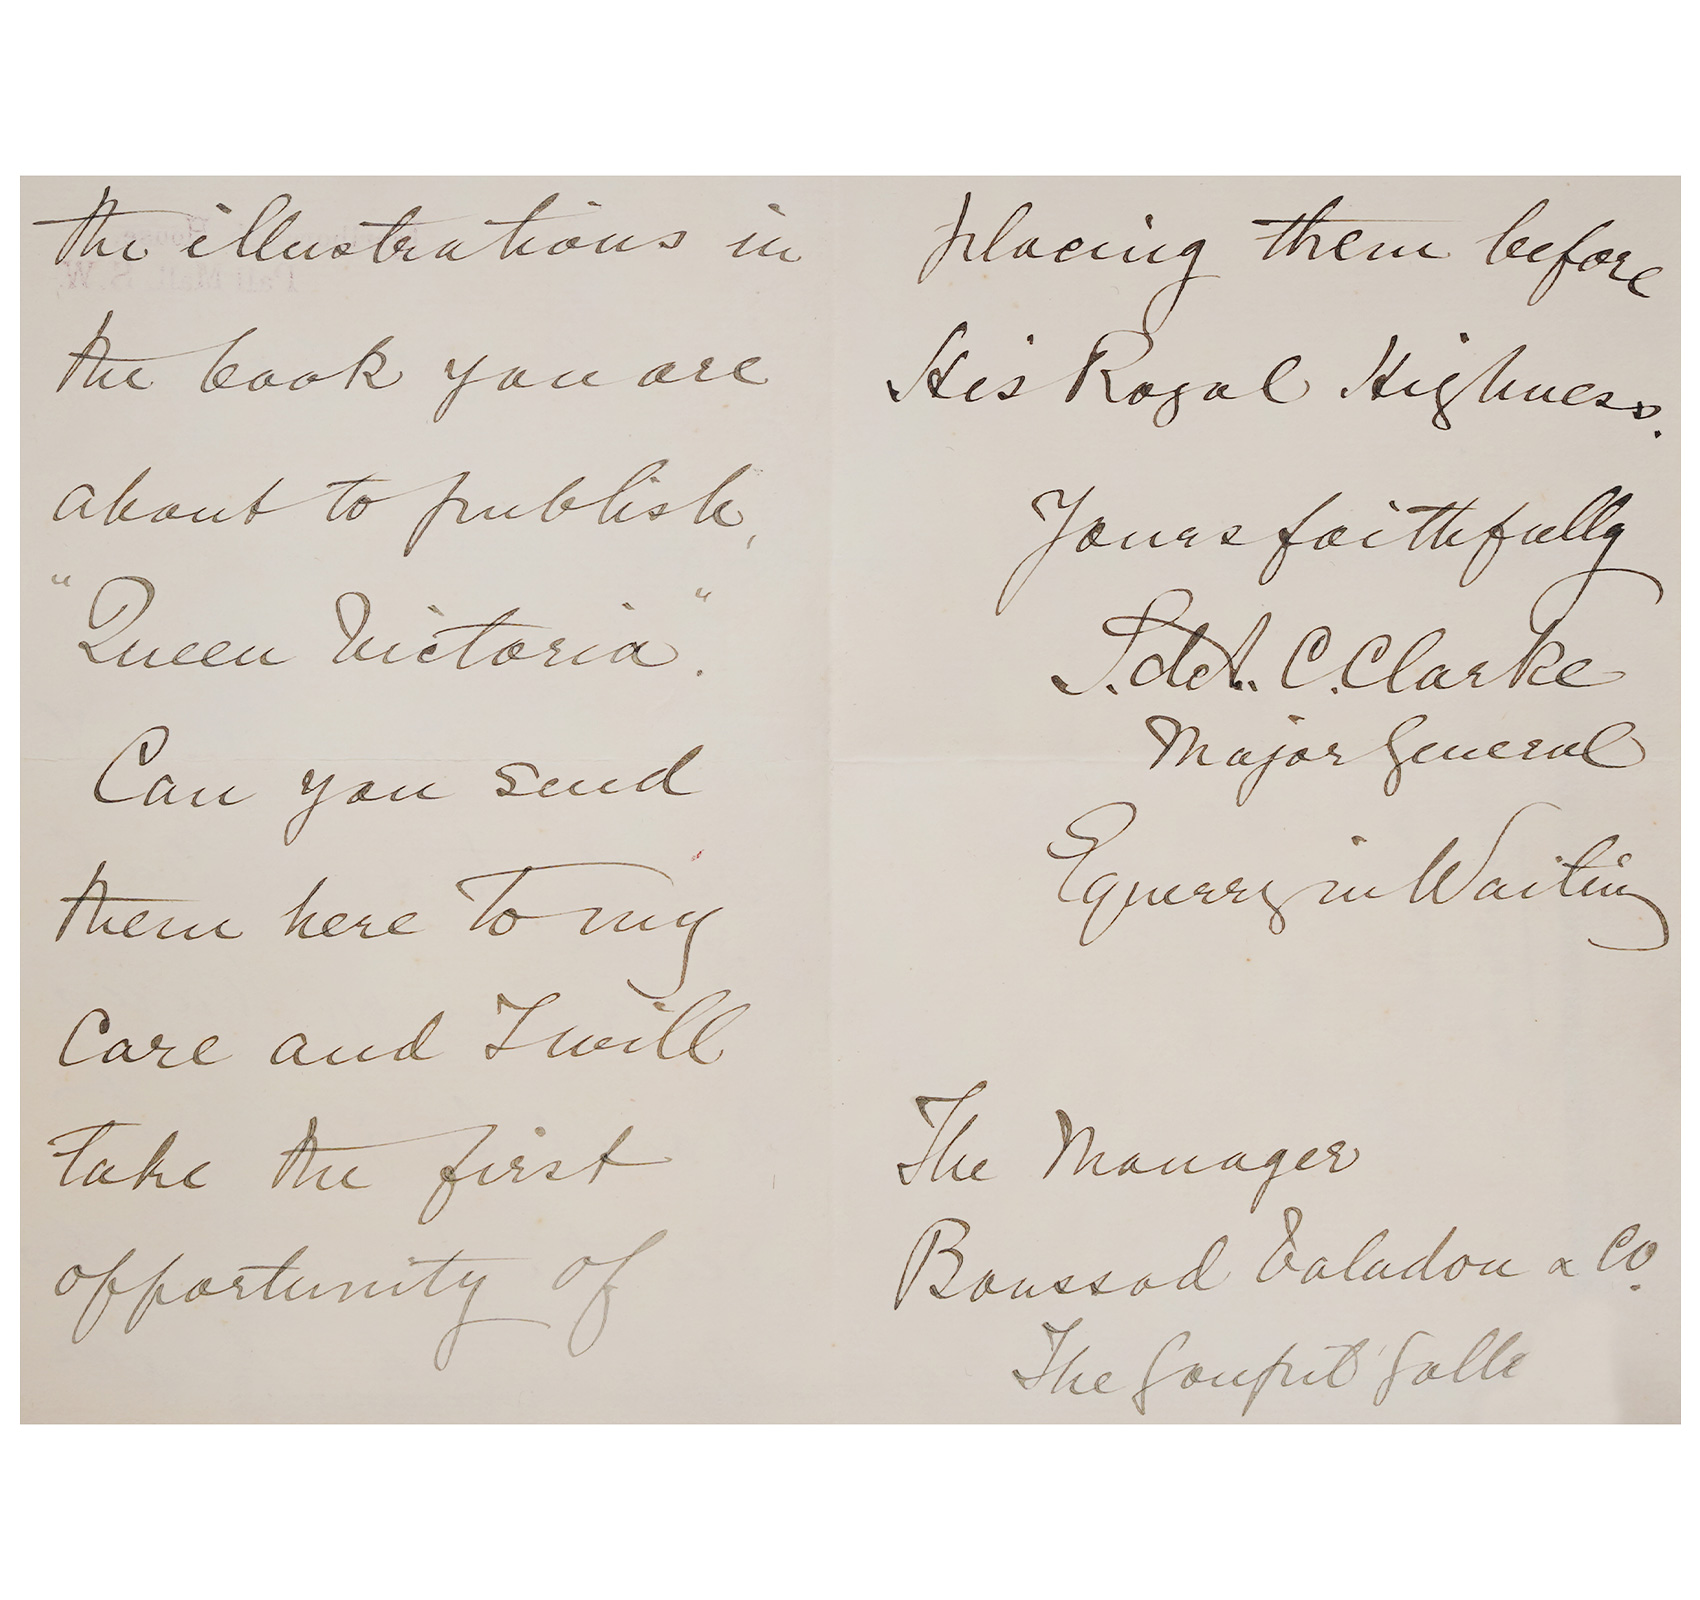 the illustrations in
the book you are
about to publish,
"Queen Victoria".
Can you send
them here to my
care and I will
take the first
opportunity of
placing them before
His Royal Highness.
Yours faithfully
S. de A. C. Clarke
Major General
Equerry in Waiting
The Manager
Boussod Valadon & Co.
The Goupil Galle
House
Pall Mall, S.W.